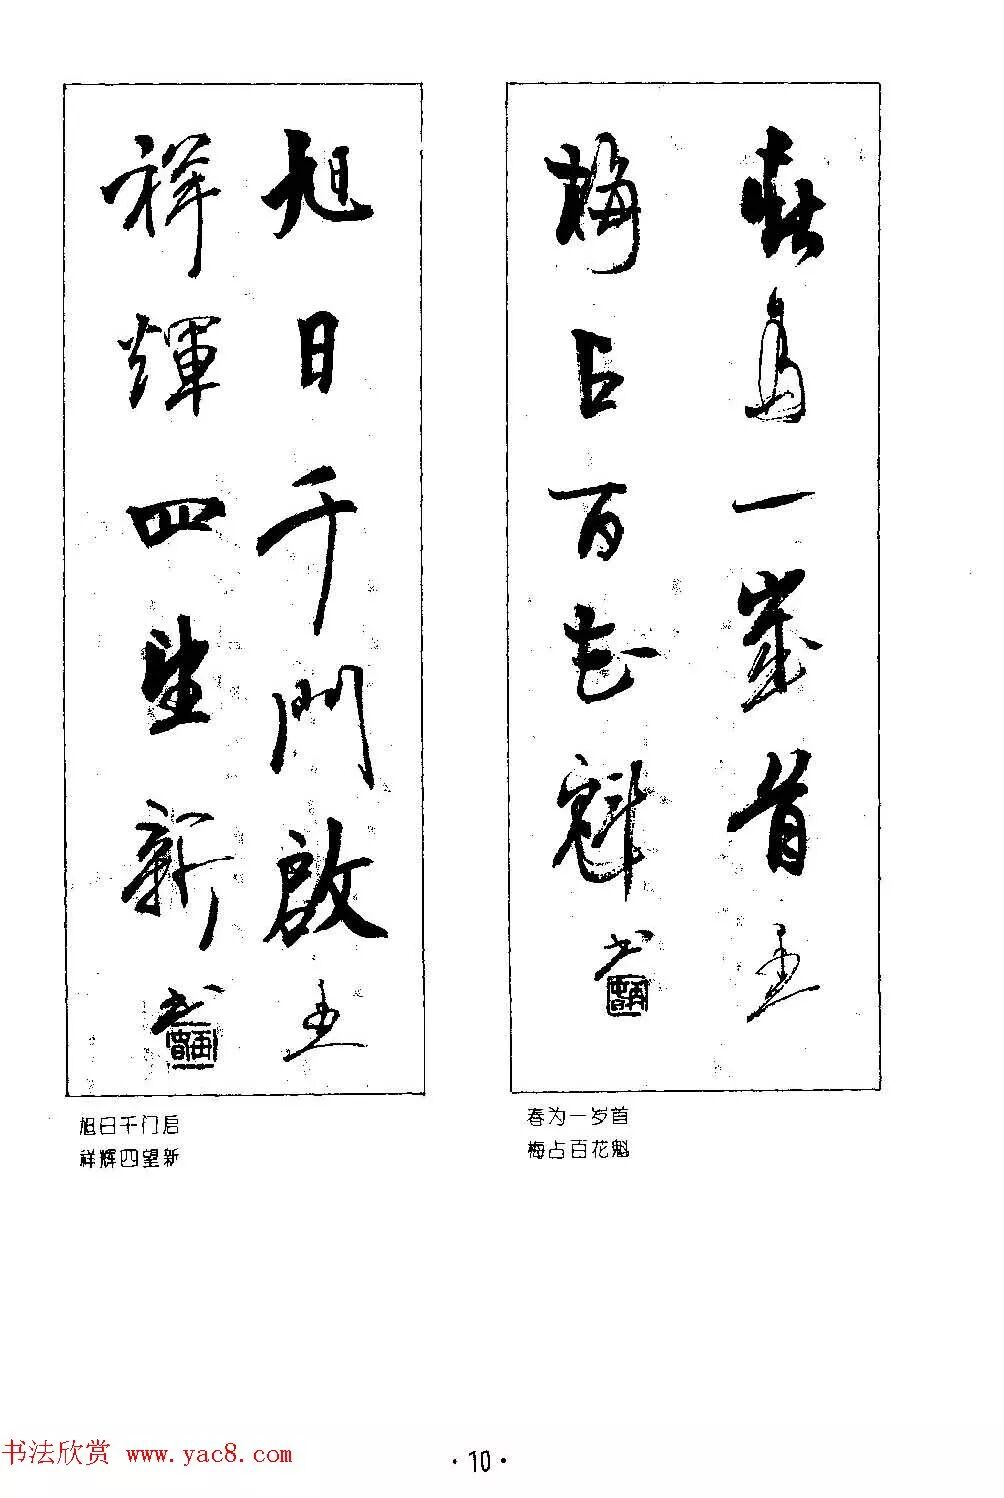 春为一歲首
梅占百花魁
书
旭日千門啟
祥輝四望新
书
春为一岁首
梅占百花魁
旭日千门启
祥辉四望新
书法欣赏 www.yac8.com
·10·